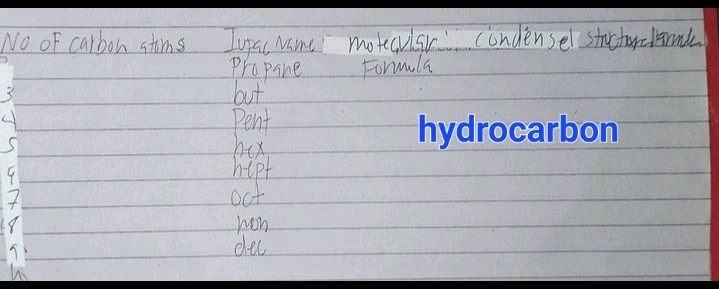 No of carbon atoms Iupac Name molecular condensel structure
Propane Formula
3 but
4 Pent
5 hex
hept
7 oct
8 non
9 dec
hydrocarbon